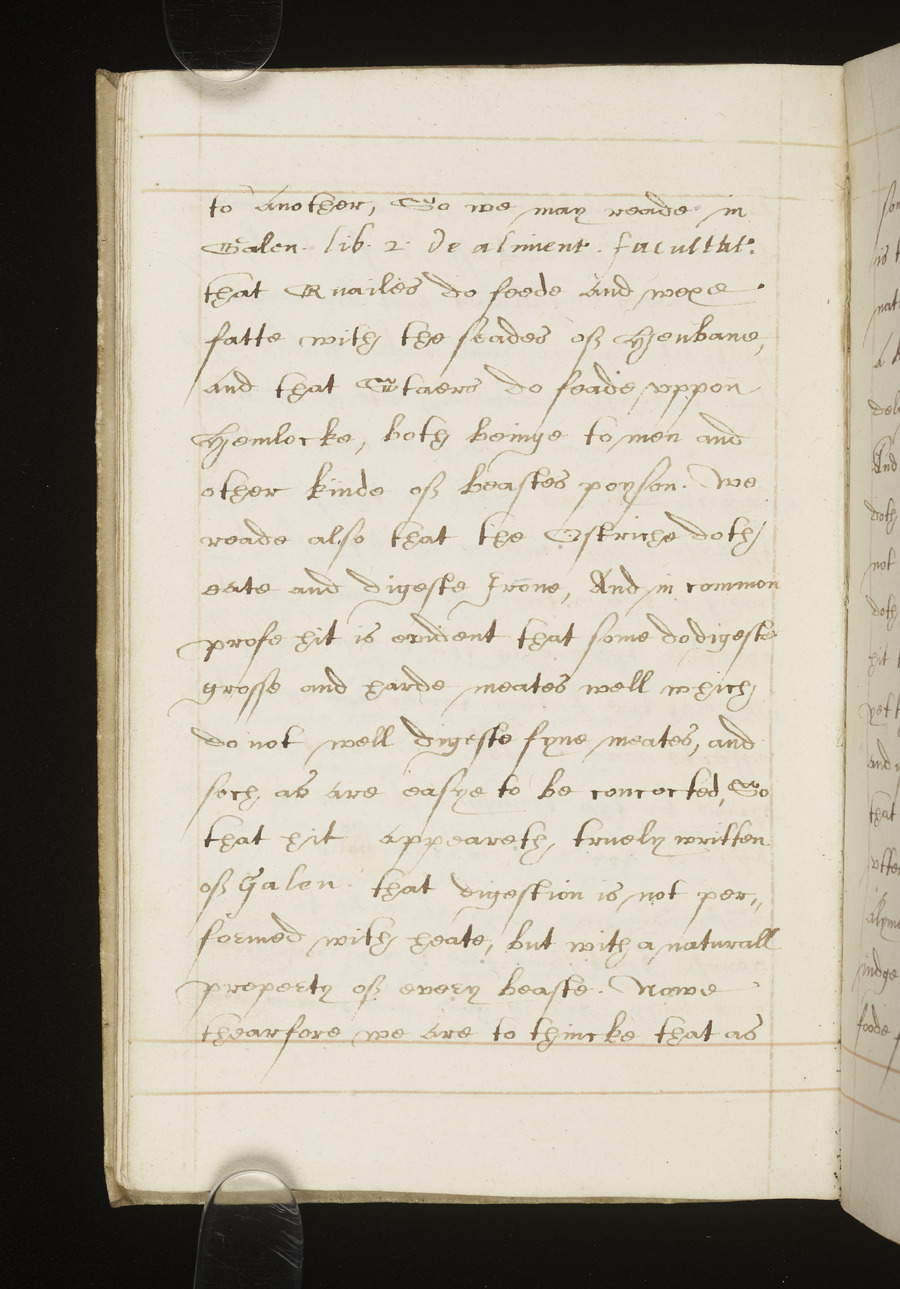 to another, So we may reade in
Galen. lib. 2. De aliment. facultat:
that Quailes do feede and wexe
fatte with the seades of Henbane,
and that Staers do feade uppon
Hemlocke, both beinge to men and
other kinde of beastes poyson. We
reade also that the Ostriche doth
eate and digeste Irone, And in common
profe hit is evident that some do digeste
grosse and harde meates well which
do not well digeste fyne meates, and
soch as are easye to be concocted, So
that hit appeareth truely written
of Galen. that digestion is not per„
formed with heate, but with a naturall
property of every beaste. Nowe
thearfore we are to thincke that as
is t
nat
del
And
doth
not
doth
hit
yet t
and
that
indge
foode